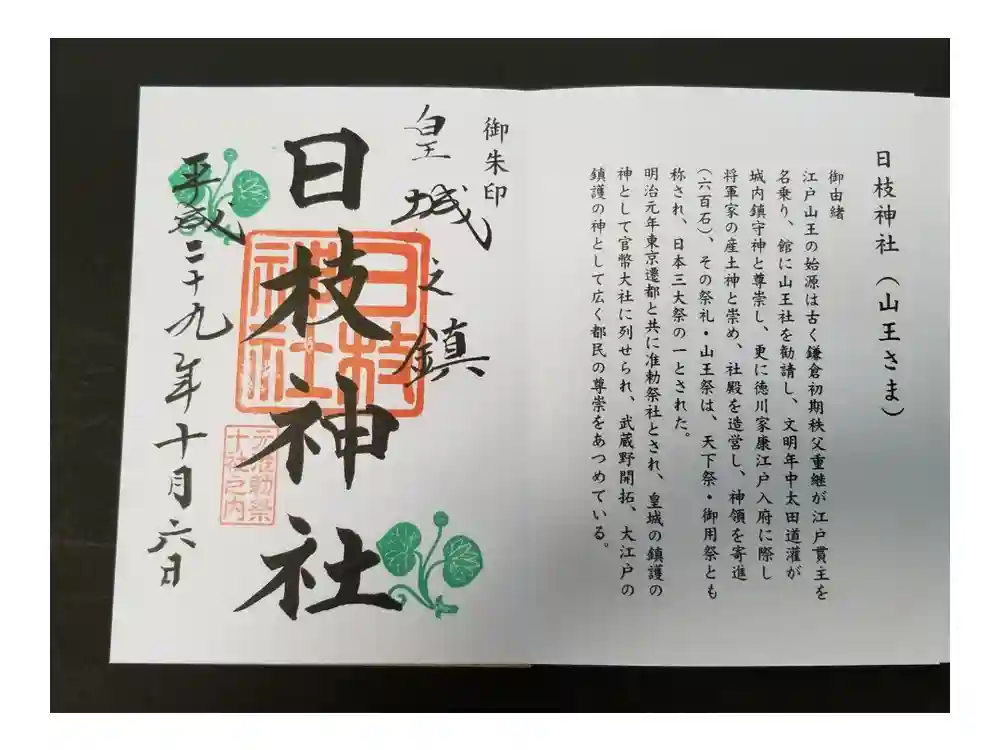 日枝神社（山王さま）
御由緒
江戸山王の始源は古く鎌倉初期秩父重継が江戸貫主を
名乗り、館に山王社を勧請し、文明年中太田道灌が
城内鎮守神と尊崇し、更に徳川家康江戸入府に際し
将軍家の産土神と崇め、社殿を造営し、神領を寄進
（六百石）、その祭礼・山王祭は、天下祭・御用祭とも
称され、日本三大祭の一とされた。
明治元年東京遷都と共に准勅祭社とされ、皇城の鎮護の
神として官幣大社に列せられ、武蔵野開拓、大江戸の
鎮護の神として広く都民の尊崇をあつめている。
御朱印
皇城之鎮
日枝神社
日枝
神社
元准勅祭
十社之内
平成二十九年十月六日